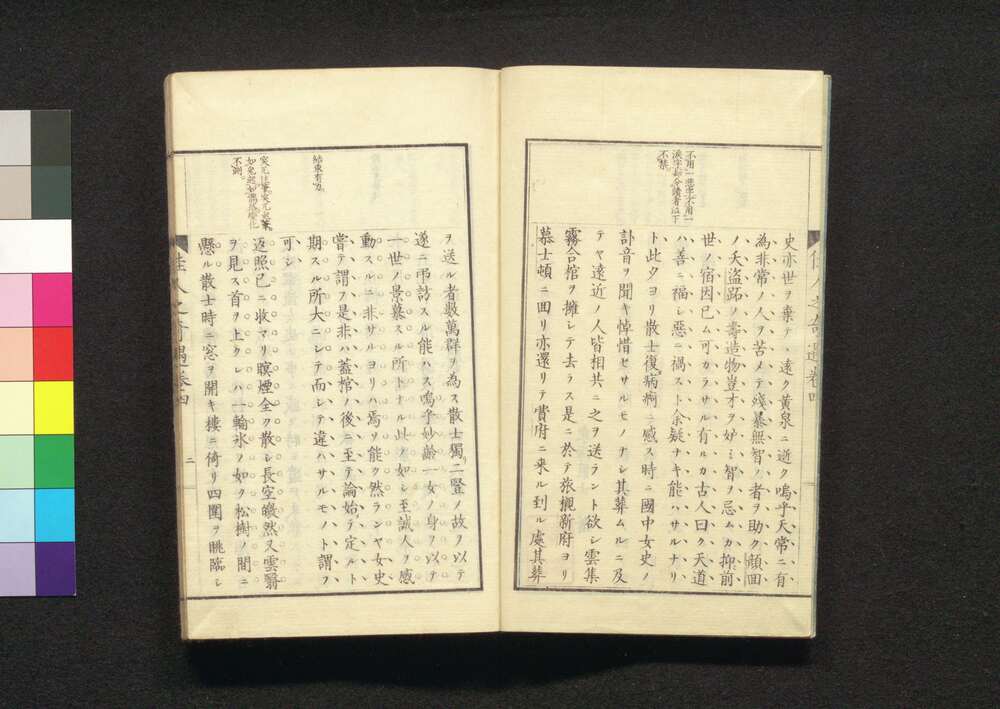 不用一悲字不用一
淚字却令讀者泣下
不禁。
史亦世ヲ棄テ、遠ク黄泉ニ逝ク嗚乎天常ニ有
為非常ノ人ヲ苦メテ殘暴無智ノ者ヲ助ク顔回
ノ夭盜跖ノ壽造物豈才ヲ妒ミ智ヲ忌ムカ抑前
世ノ宿因已ム可カラサル有ルカ古人曰ク天道
ハ善ニ福シ惡ニ禍スト余疑ナキ能ハサルナリ
ト此夕ヨリ散士復病痾ニ感ス時ニ國中女史ノ
訃音ヲ聞キ悼惜セサルモノナシ其葬ムルニ及
テヤ遠近ノ人皆相共ニ之ヲ送ラント欲シ雲集
霧合棺ヲ擁シテ去ラス是ニ於テ旅櫬新府ヨリ
慕士頓ニ回リ亦還リテ費府ニ来ル到ル處其葬
結束有力。
不測。
ヲ送ル者數萬群ヲ為ス散士獨リ二豎ノ故ヲ以テ
遂ニ弔訪スル能ハス嗚乎妙齡一女ノ身ヲ以テ
一世ノ景慕スル所トナル此ノ如シ至誠人ヲ感
動スルニ非サルヨリハ焉ソ能ク然ランヤ女史
嘗テ謂フ是非ハ蓋棺ノ後ニ至テ論始テ定ルト
期スル所大ニシテ而シテ違ハサルモノト謂フ
可シ
返照已ニ收マリ暝煙全ク散シ長空皦然又雲翳
ヲ見ス首ヲ上クレハ一輪氷ノ如ク松樹ノ間ニ
懸ル散士時ニ窓ヲ開キ樓ニ倚リ四圍ヲ眺臨シ
佳人之奇遇卷四
二